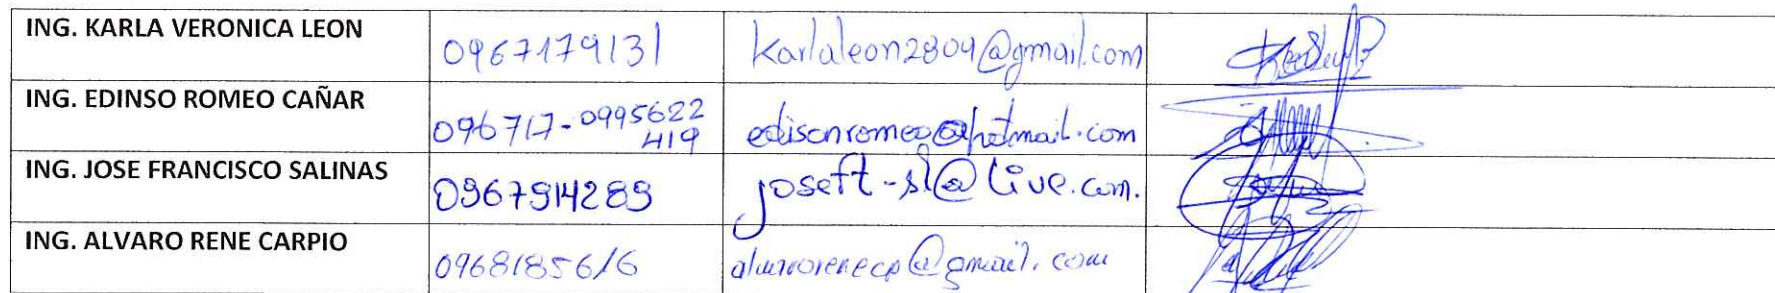 ING. KARLA VERONICA LEON 0967179131 karlaleon2804@gmail.com
ING. EDINSO ROMEO CAÑAR 096717-0995622419 edisonromeo@hotmail.com
ING. JOSE FRANCISCO SALINAS 0967914289 joseft-sl@live.com.
ING. ALVARO RENE CARPIO 0968185616 alvarorenecp@gmail.com